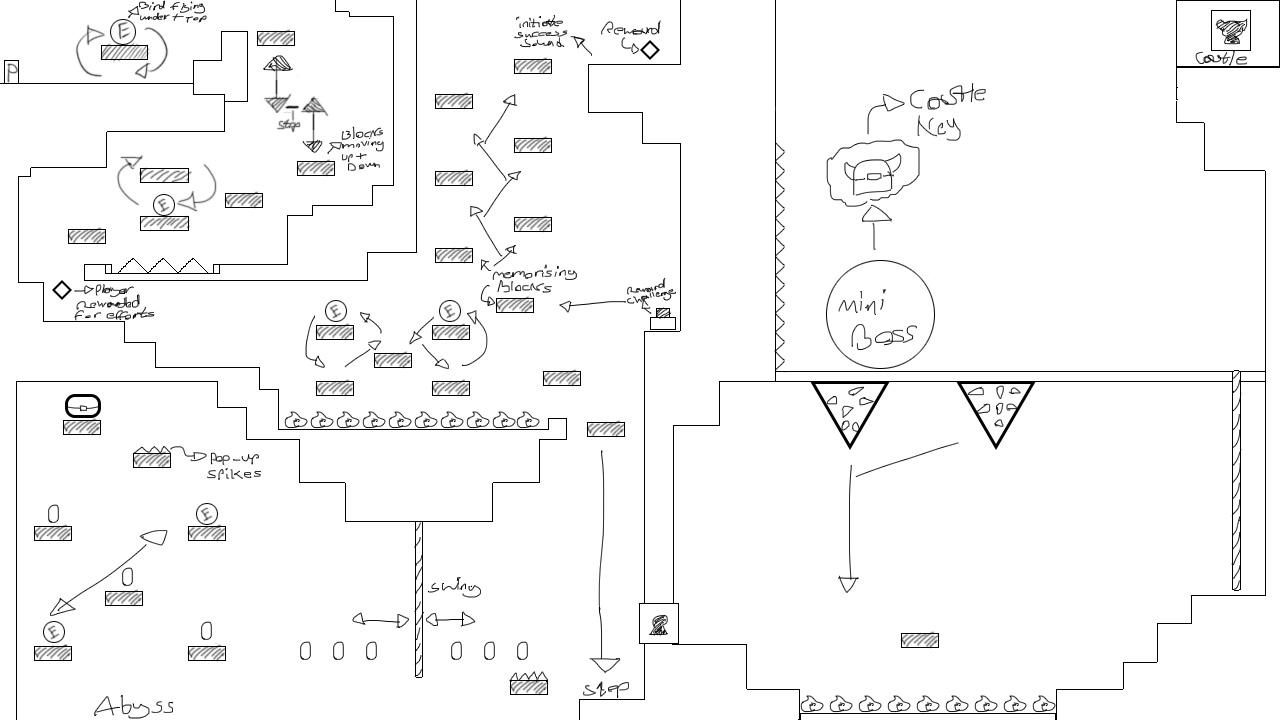 Bird flying
under + Top
E
P
Stop
Blocks
moving
up +
Down
E
Player
Rewarded
for efforts
initiate
success
sound
Reward
memorising
Blocks
Reward
challenge
E
E
Pop-up
spikes
E
E
Abyss
swing
stop
Castle
Key
mini
Boss
Castle